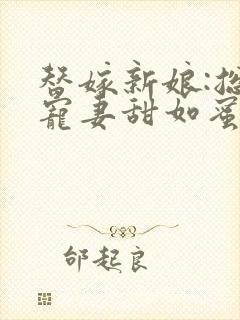 替嫁新娘:总
宠妻甜如蜜
邰起良